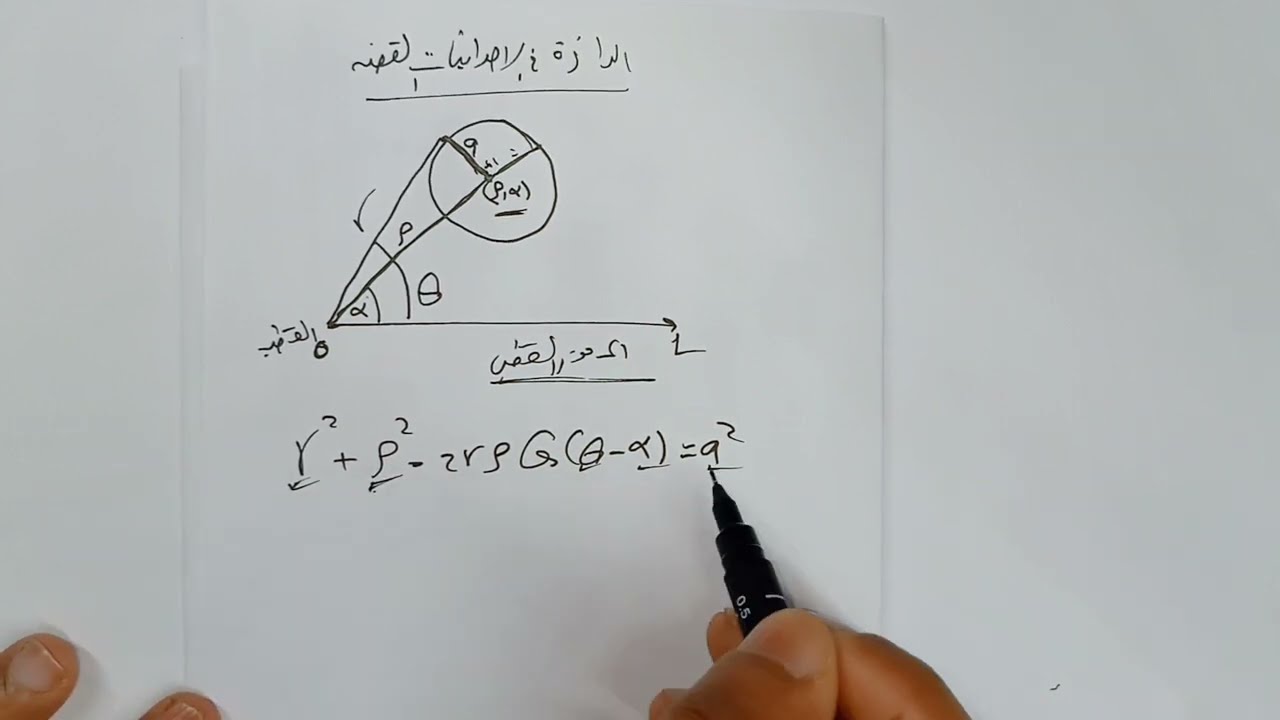 الدائرة في الإحداثيات القطبية
a
(ρ,α)
r
ρ
θ
α
القطب
O
L
المحور القطبي
r² + ρ² - 2rρ Cos(θ-α) = a²
0.5